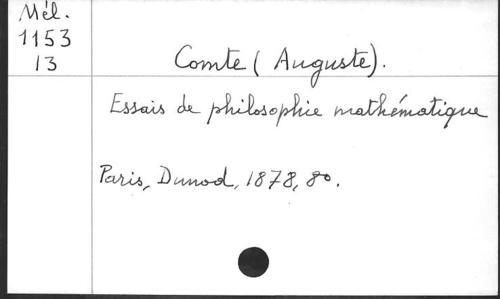 Mél.
1153
13
Comte (Auguste).
Essais de philosophie mathématique
Paris, Dunod, 1878, 8o.